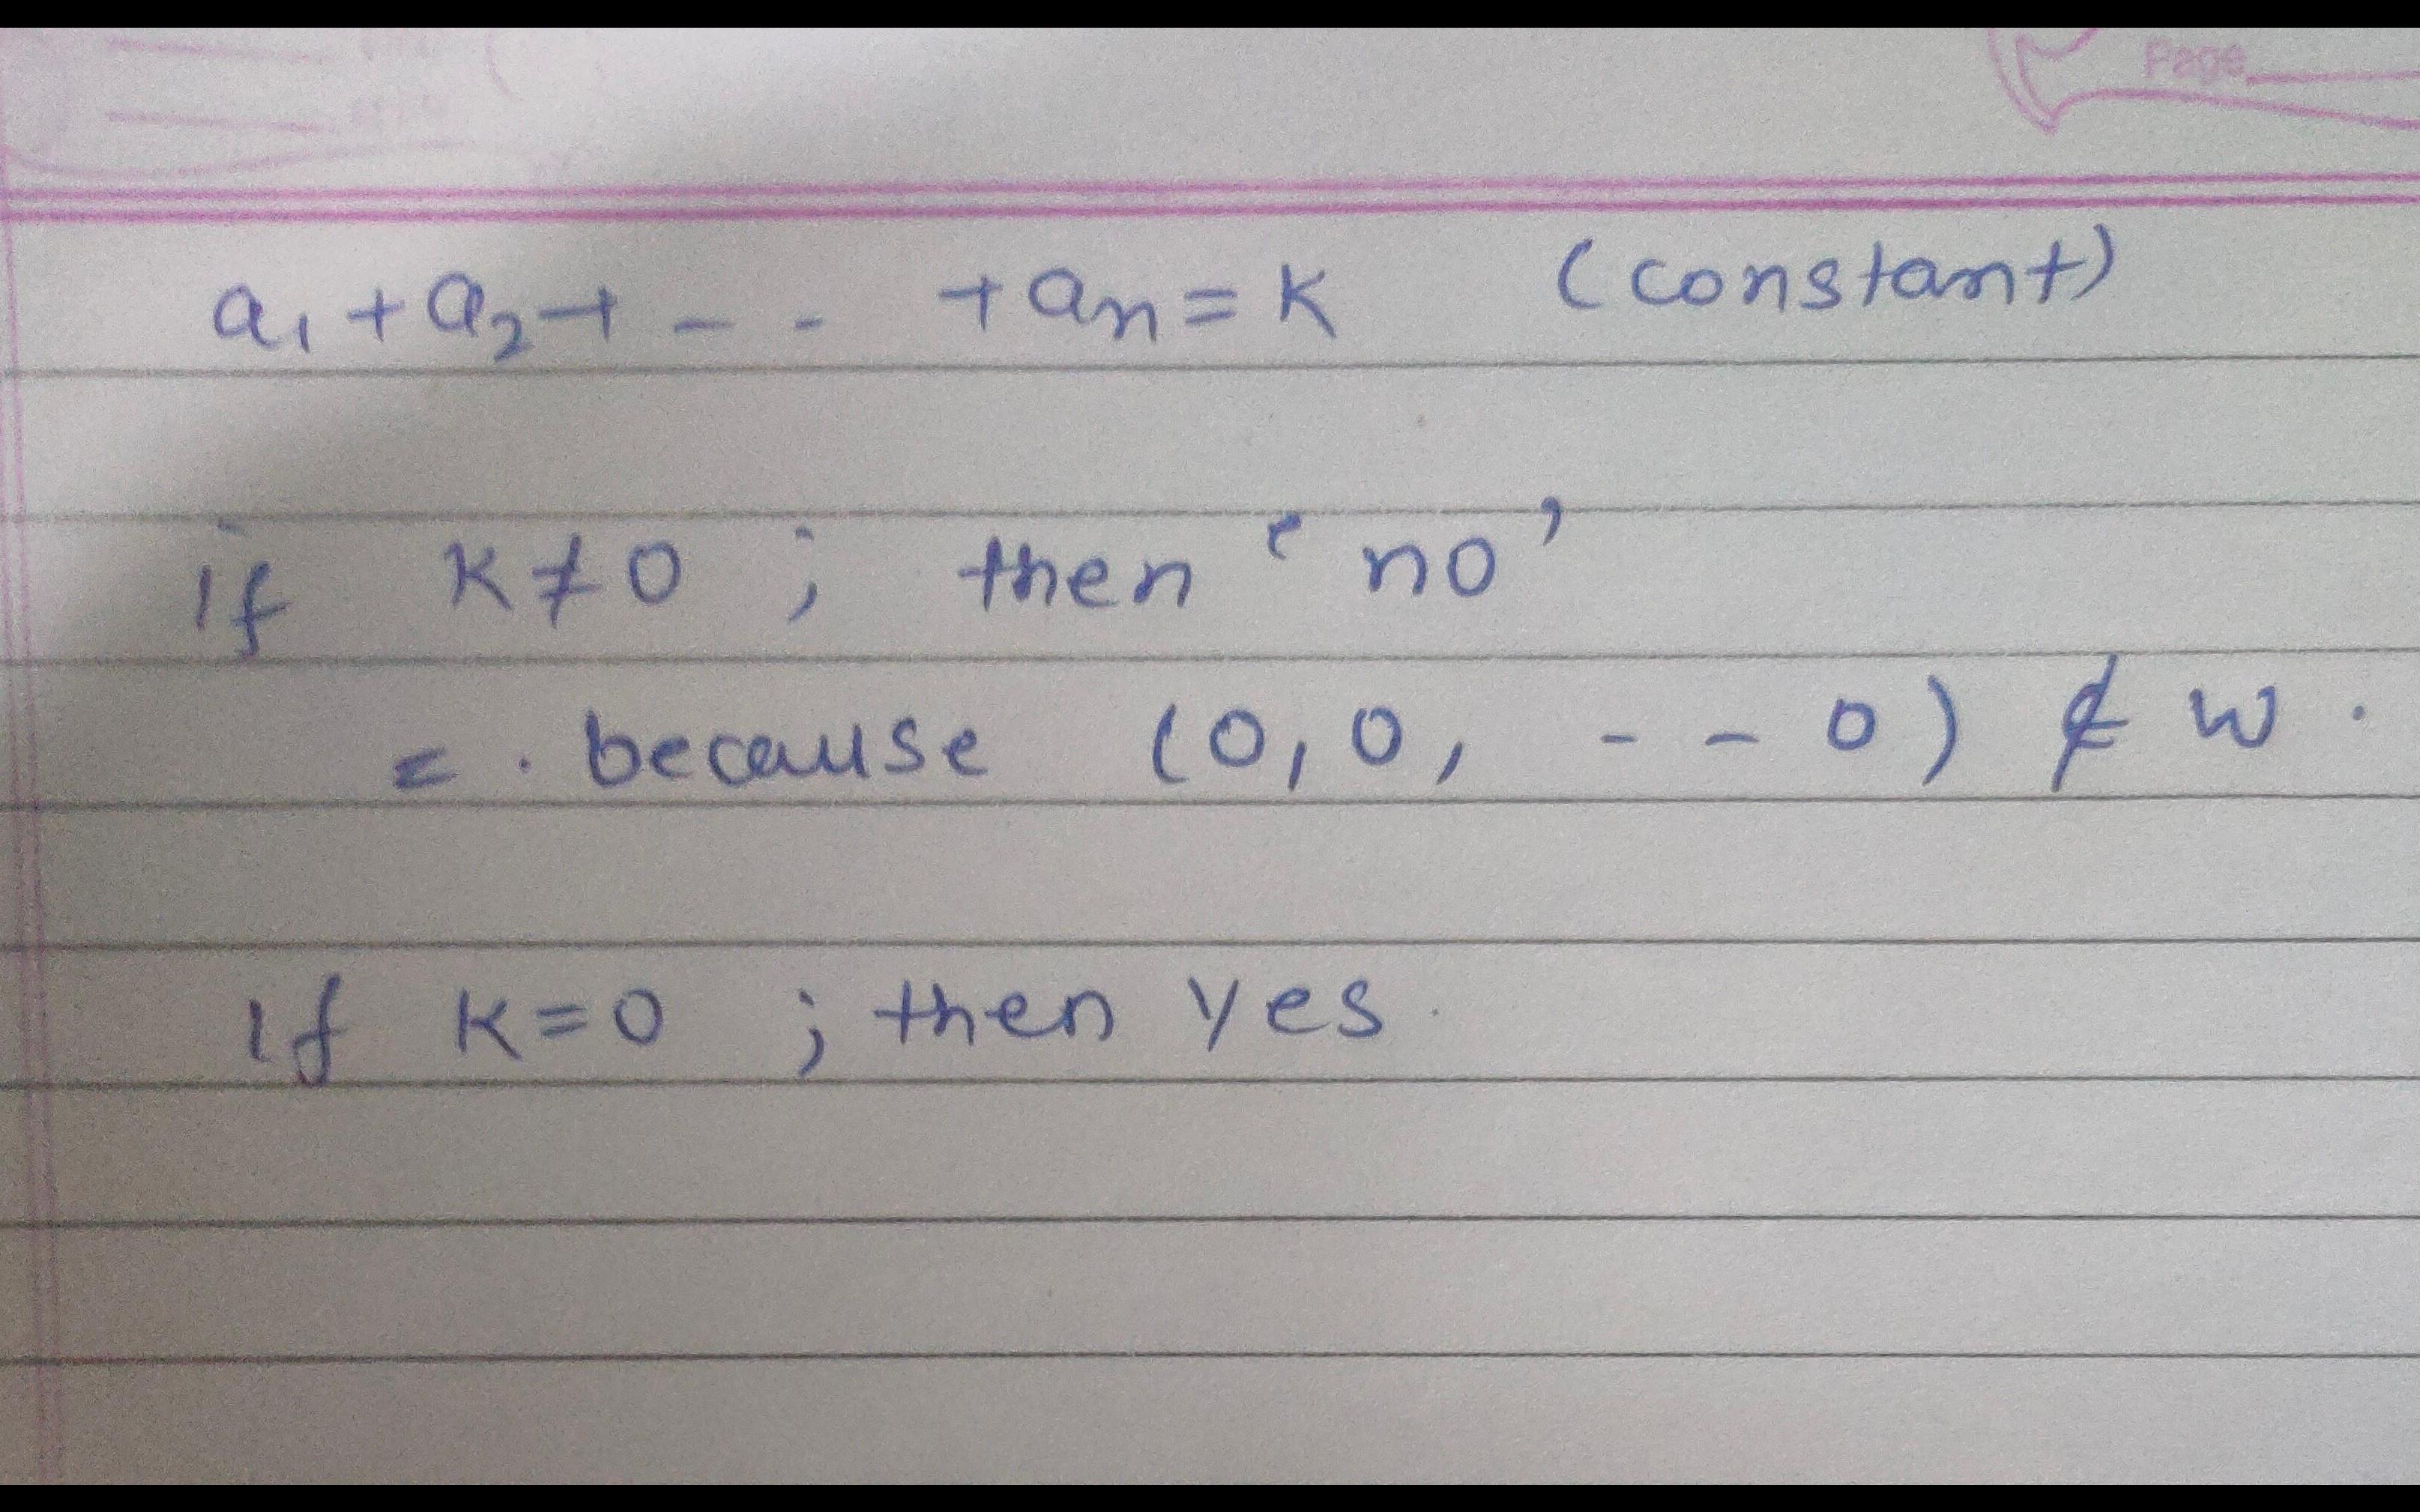 Page
a₁ + a₂ + - - + aₙ = K (constant)
if K ≠ 0 ; then 'no'
= . because (0, 0, - - 0) ∉ W .
if K = 0 ; then yes .